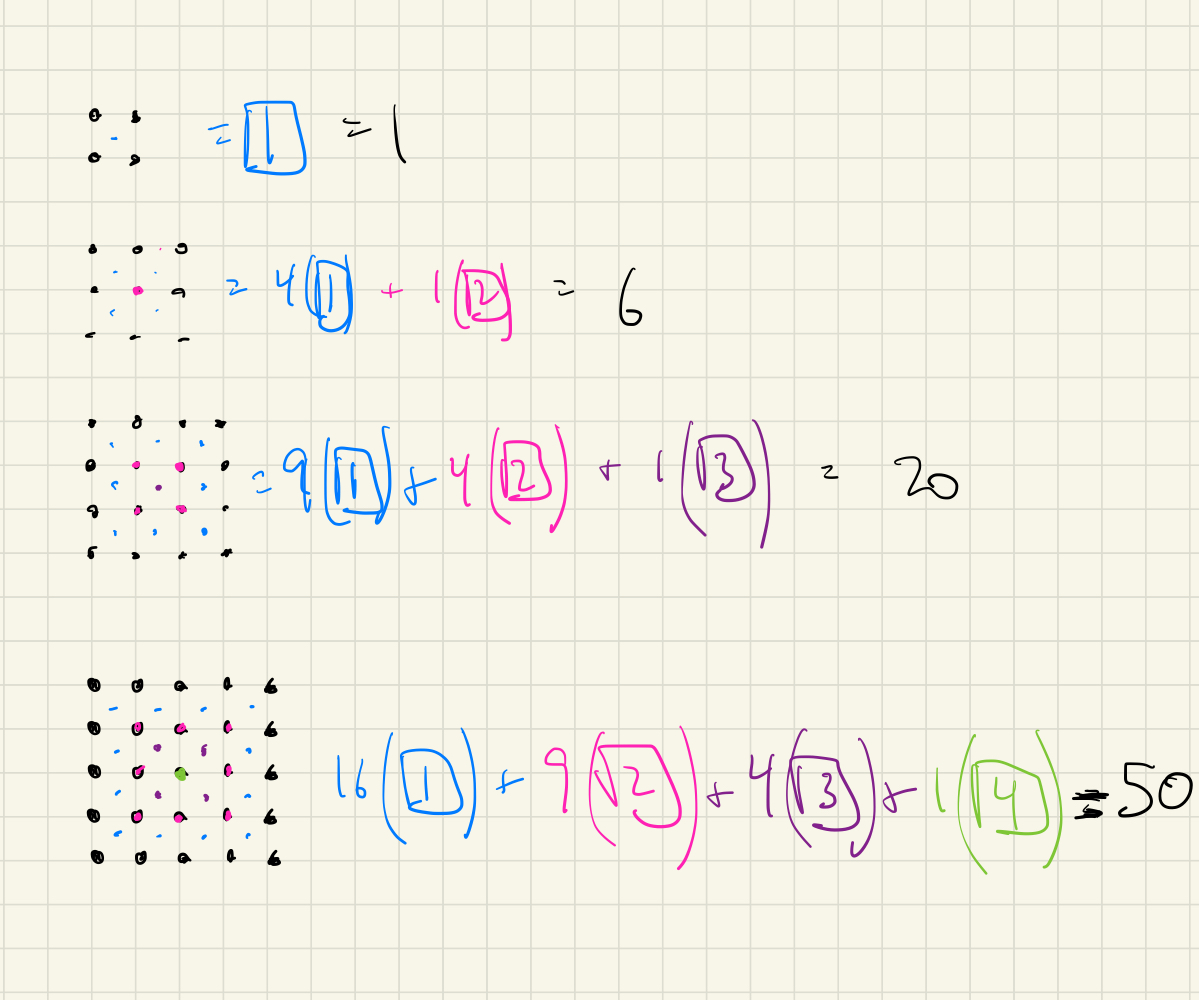 = 1 = 1
= 4(1) + 1(2) = 6
= 9(1) + 4(2) + 1(3) = 20
16(1) + 9(2) + 4(3) + 1(4) = 50